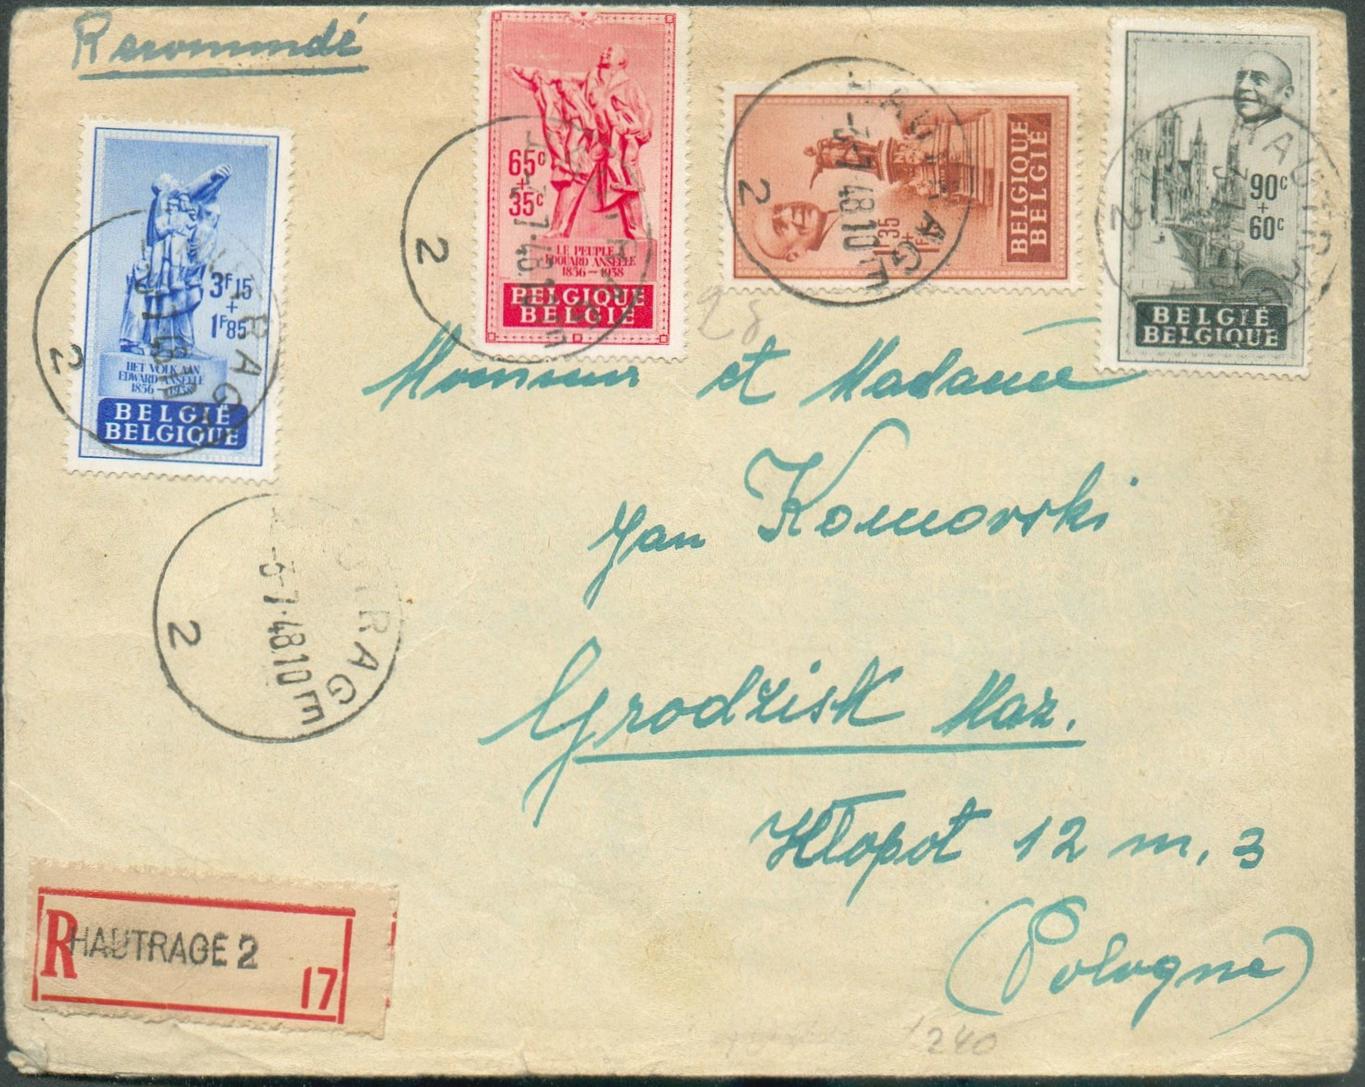 Recommandé
65c
+
35c
LE PEUPLE A
EDOUARD ANSEELE
1856-1938
BELGIQUE
BELGIË
1F35
BELGIQUE
BELGIË
90c
+
60c
BELGIË
BELGIQUE
3F15
+
1F85
HET VOLK AAN
EDWARD ANSEELE
1856-1938
BELGIË
BELGIQUE
HAUTRAGE
-3-7-4810
2
28
Monsieur et Madame
Jan Komorski
Grodzisk Maz.
Kłopot 12 m. 3
(Pologne)
TRAGE
-7-4810
2
R HAUTRAGE 2
17
240